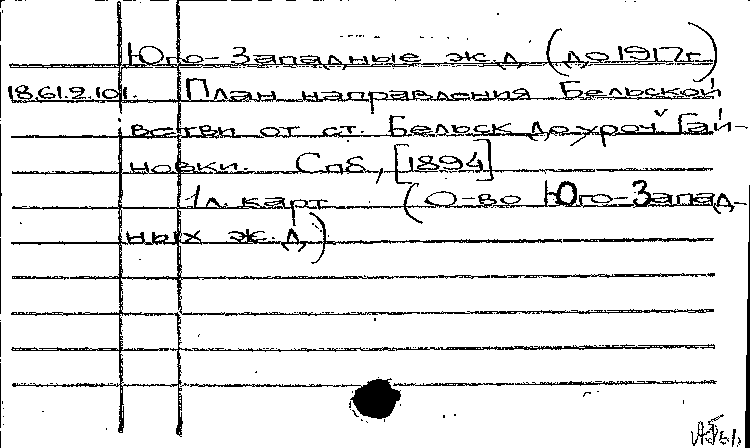 Юго-Западные ж.д. (до 1917г.)
18.61.2.101. План направления Бельской
ветви от ст. Бельск до уроч. Гай-
новки. Спб, [1894]
1 л. карт. (О-во Юго-Запад-
ных ж.д.)